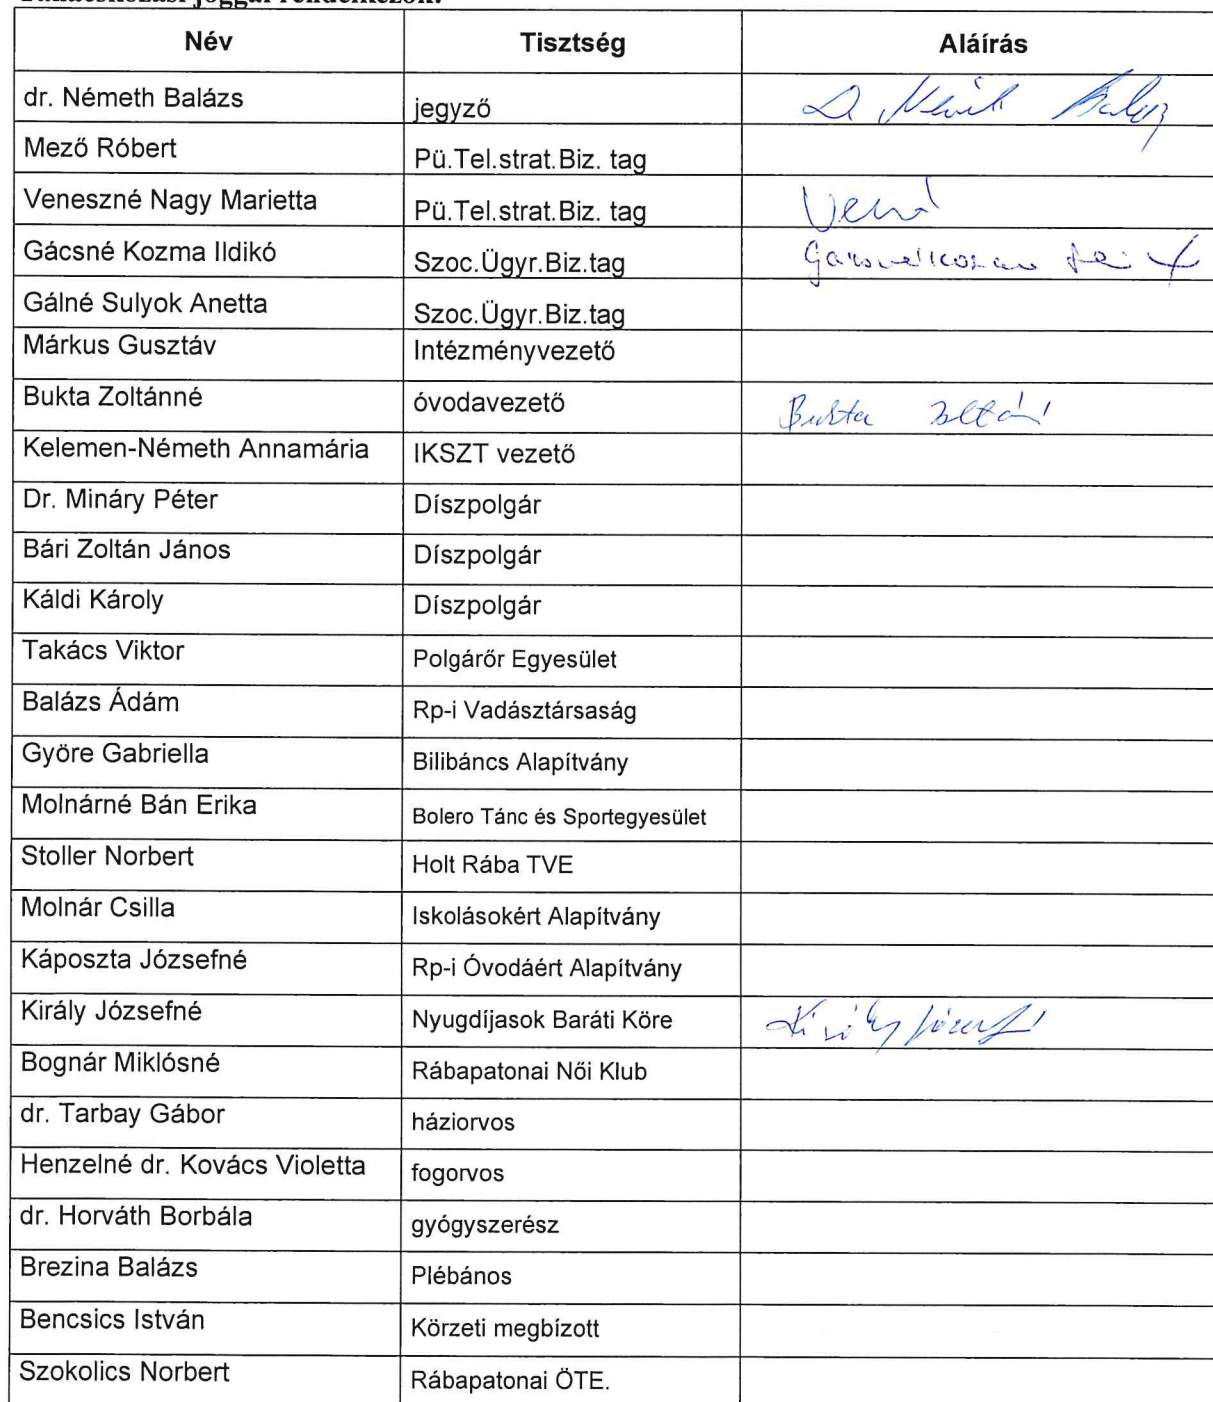 Név Tisztség Aláírás
dr. Németh Balázs jegyző Dr Németh Balázs
Mező Róbert Pü.Tel.strat.Biz. tag
Veneszné Nagy Marietta Pü.Tel.strat.Biz. tag
Gácsné Kozma Ildikó Szoc.Ügyr.Biz.tag Gácsné Kozma
Gálné Sulyok Anetta Szoc.Ügyr.Biz.tag
Márkus Gusztáv Intézményvezető
Bukta Zoltánné óvodavezető Bukta Zoltánné
Kelemen-Németh Annamária IKSZT vezető
Dr. Mináry Péter Díszpolgár
Bári Zoltán János Díszpolgár
Káldi Károly Díszpolgár
Takács Viktor Polgárőr Egyesület
Balázs Ádám Rp-i Vadásztársaság
Györe Gabriella Bilibáncs Alapítvány
Molnárné Bán Erika Bolero Tánc és Sportegyesület
Stoller Norbert Holt Rába TVE
Molnár Csilla Iskolásokért Alapítvány
Káposzta Józsefné Rp-i Óvodáért Alapítvány
Király Józsefné Nyugdíjasok Baráti Köre Király Józsefné
Bognár Miklósné Rábapatonai Női Klub
dr. Tarbay Gábor háziorvos
Henzelné dr. Kovács Violetta fogorvos
dr. Horváth Borbála gyógyszerész
Brezina Balázs Plébános
Bencsics István Körzeti megbízott
Szokolics Norbert Rábapatonai ÖTE.